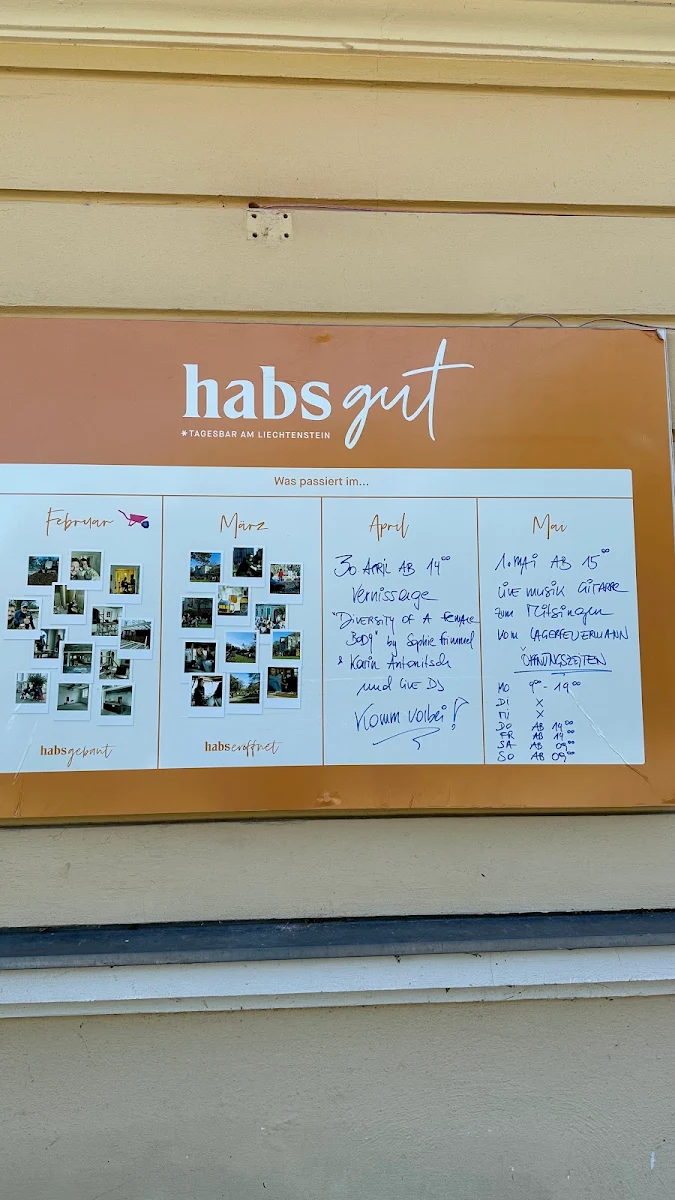 habs gut
*TAGESBAR AM LIECHTENSTEIN
Was passiert im...
Februar
habsgebaut
März
habseröffnet
April
30 APRIL AB 14⁰⁰
Vernissage
"DIVERSITY OF A FEMALE
BODY" by Sophie Frimmel
& Karin Antonitsch
und LIVE DJ
Komm vorbei!
Mai
1. MAI AB 15⁰⁰
LIVE musik GITARRE
zum Mitsingen
vom LAGERFEUERMANN
ÖFFNUNGSZEITEN
MO 9⁰⁰ - 19⁰⁰
DI X
MI X
DO AB 14⁰⁰
FR AB 14⁰⁰
SA AB 09⁰⁰
SO AB 09⁰⁰